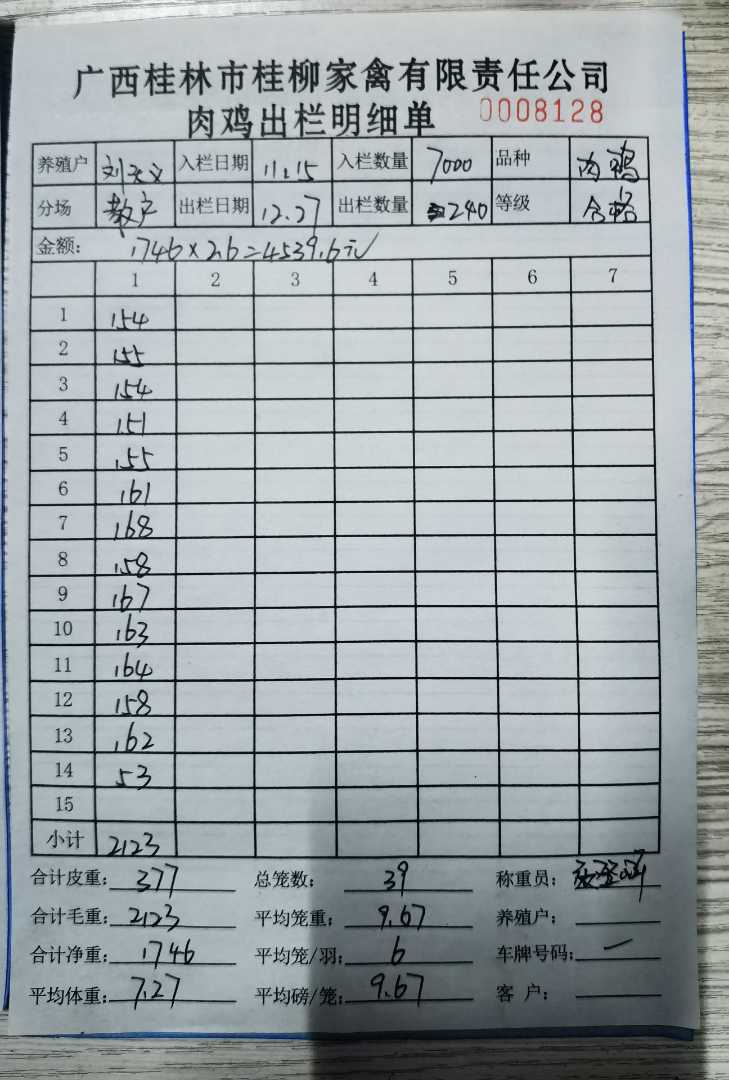 广西桂林市桂柳家禽有限责任公司
肉鸡出栏明细单 0008128
养殖户 刘天文 入栏日期 11.15 入栏数量 7000 品种 肉鸡
分场 散户 出栏日期 12.27 出栏数量 240 等级 合格
金额: 1746×2.6=4539.6元
1 2 3 4 5 6 7
1 154
2 155
3 154
4 151
5 155
6 161
7 168
8 158
9 167
10 163
11 164
12 158
13 162
14 53
15
小计 2123
合计皮重: 377 总笼数: 39 称重员:
合计毛重: 2123 平均笼重: 9.67 养殖户:
合计净重: 1746 平均笼/羽: 6 车牌号码: 一
平均体重: 7.27 平均磅/笼: 9.67 客户: